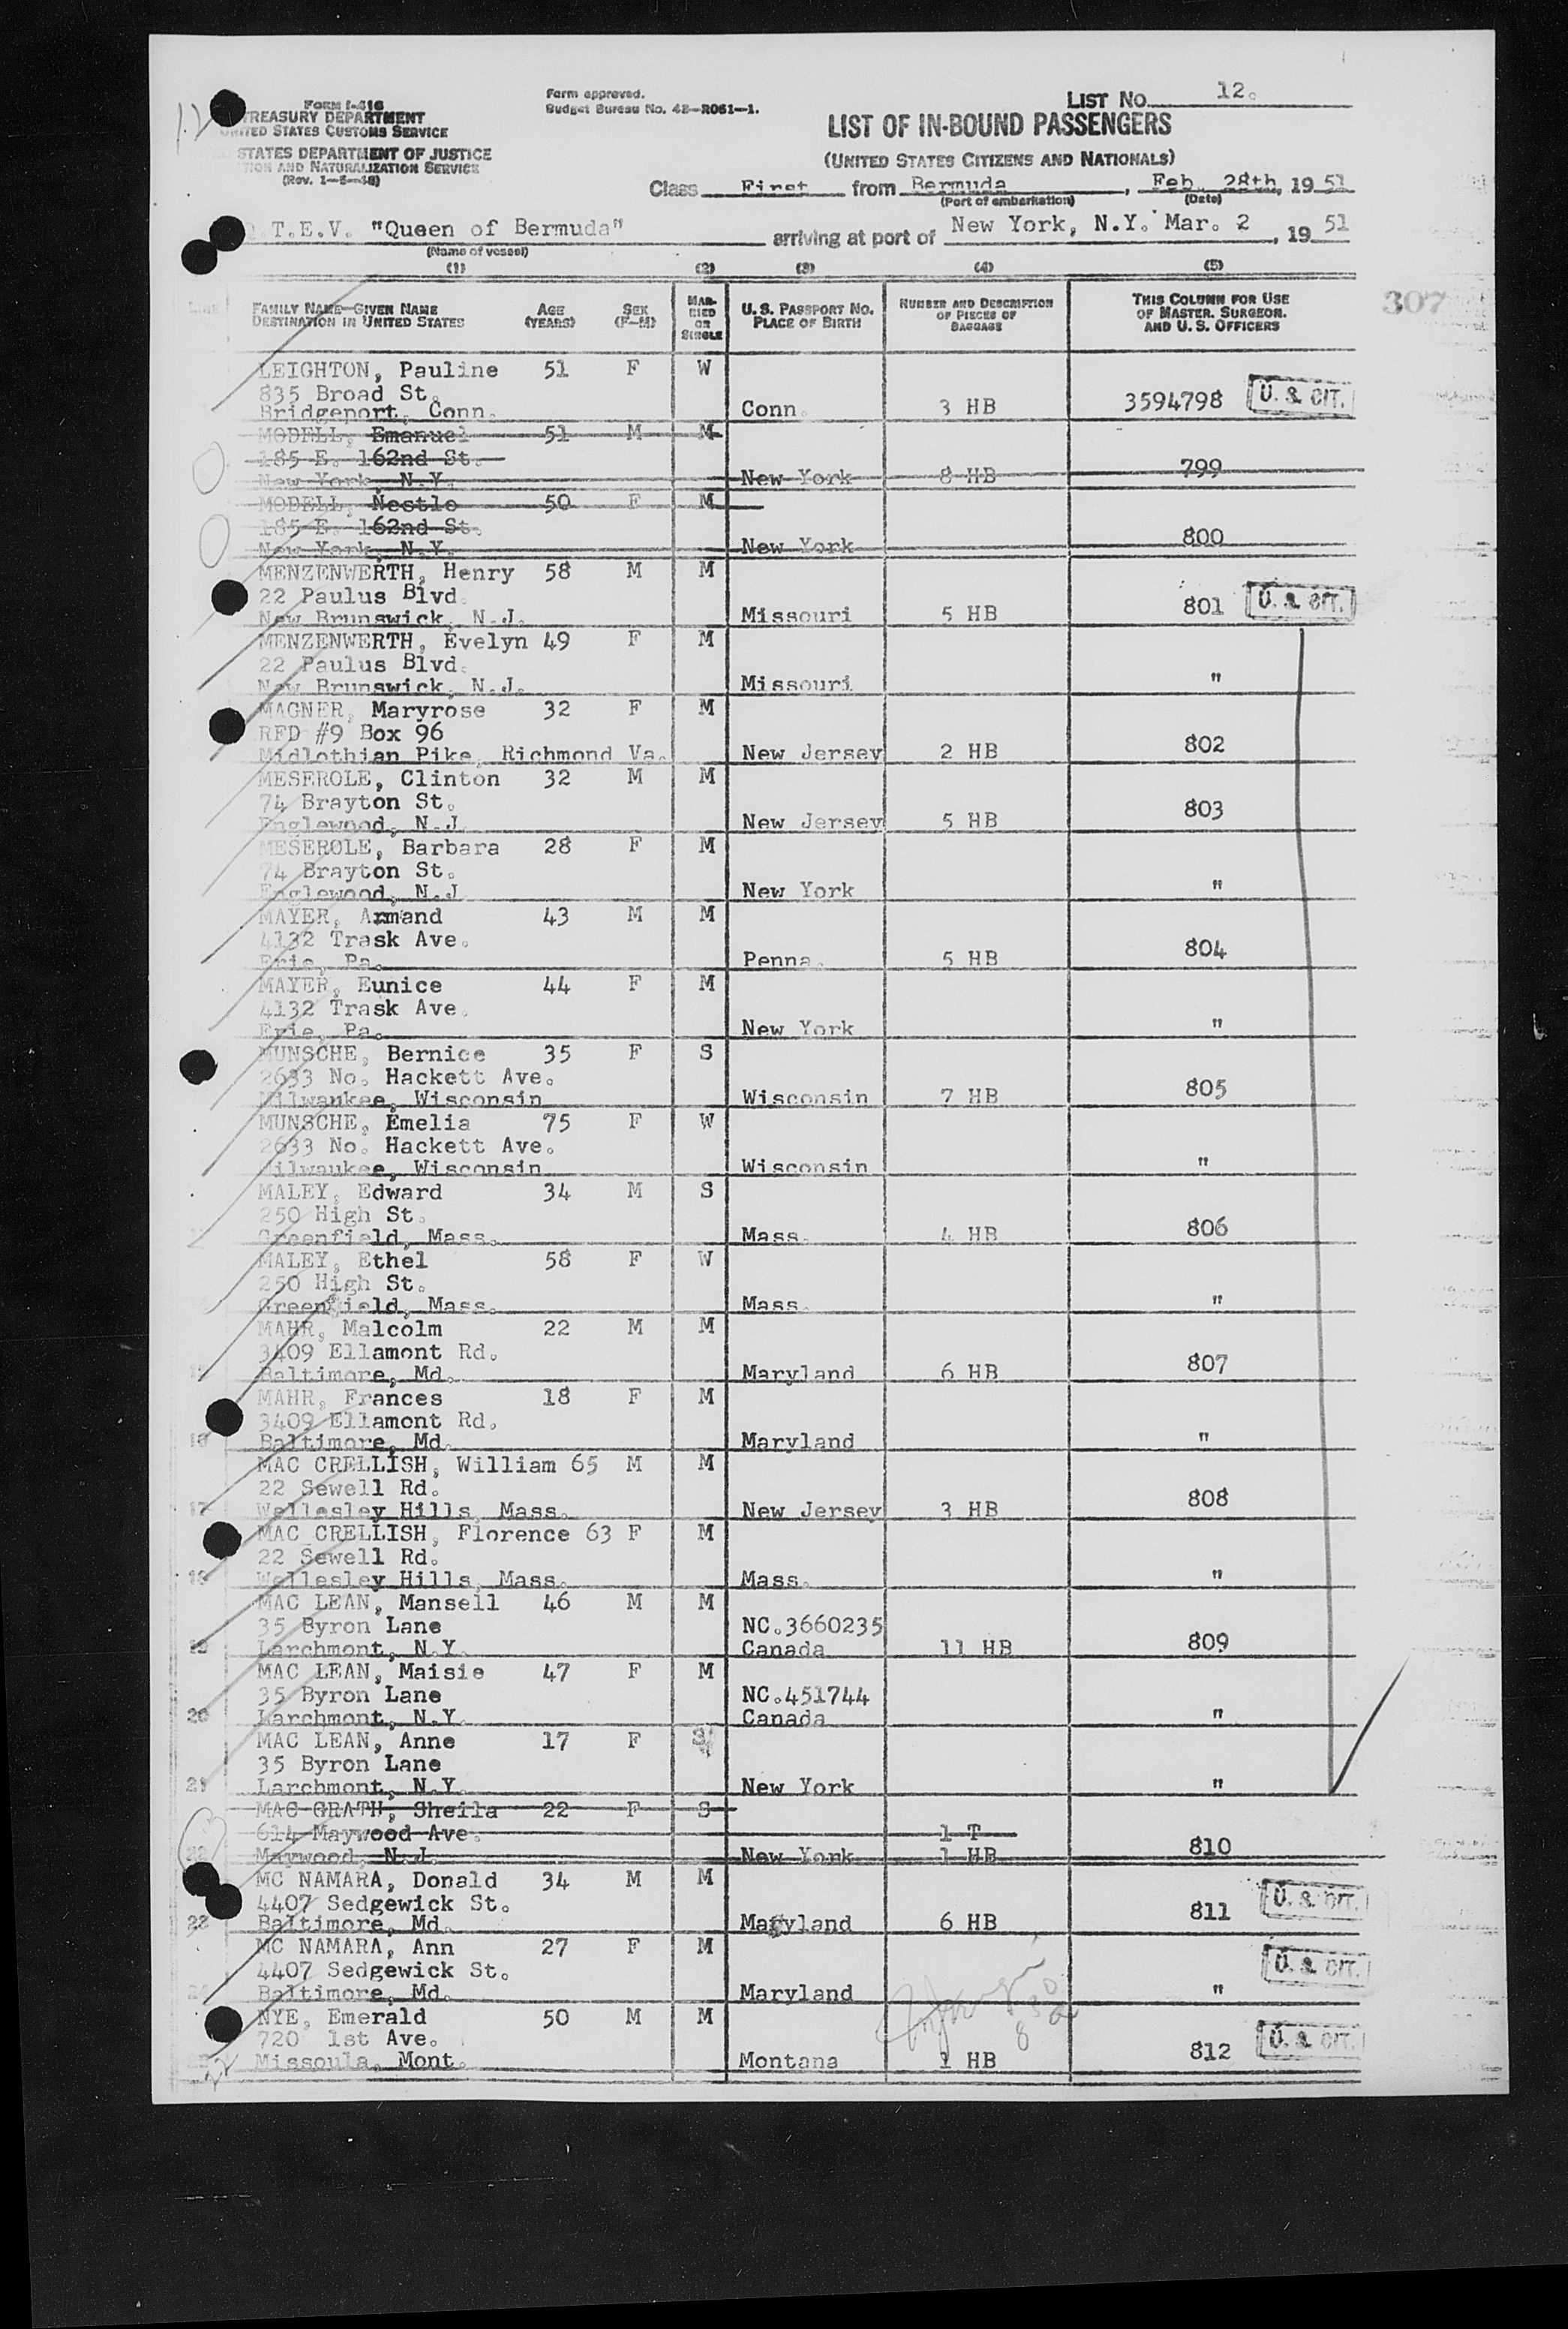 FORM I-416
TREASURY DEPARTMENT
UNITED STATES CUSTOMS SERVICE
STATES DEPARTMENT OF JUSTICE
AND NATURALIZATION SERVICE
Form approved.
Budget Bureau No. 43-R061-1.
LIST No. 12.
LIST OF IN-BOUND PASSENGERS
(UNITED STATES CITIZENS AND NATIONALS)
Class First from Bermuda, Feb. 28th, 19 51
(Port of embarkation) (Date)
T.E.V. "Queen of Bermuda" arriving at port of New York, N.Y. Mar. 2, 19 51
(Name of vessel)
(1) (2) (3) (4) (5)
LINE FAMILY NAME—GIVEN NAME DESTINATION IN UNITED STATES AGE (YEARS) SEX (F-M) MARRIED OR SINGLE U. S. PASSPORT NO. PLACE OF BIRTH NUMBER AND DESCRIPTION OF PIECES OF BAGGAGE THIS COLUMN FOR USE OF MASTER, SURGEON, AND U. S. OFFICERS
307
LEIGHTON, Pauline 51 F W
835 Broad St. 3594798 U. S. CIT.
Bridgeport, Conn. Conn. 3 HB
MODELL, Emanuel 51 M M
185 E. 162nd St. 799
New York, N.Y. New York 8 HB
MODELL, Nestle 50 F M
185 E. 162nd St. 800
New York, N.Y. New York
MENZENWERTH, Henry 58 M M
22 Paulus Blvd. 801 U. S. CIT.
New Brunswick, N.J. Missouri 5 HB
MENZENWERTH, Evelyn 49 F M
22 Paulus Blvd. "
New Brunswick, N.J. Missouri
MAGNER, Maryrose 32 F M
RFD #9 Box 96 802
Midlothian Pike, Richmond Va. New Jersey 2 HB
MESEROLE, Clinton 32 M M
74 Brayton St. 803
Englewood, N.J. New Jersey 5 HB
MESEROLE, Barbara 28 F M
74 Brayton St. "
Englewood, N.J. New York
MAYER, Armand 43 M M
4132 Trask Ave. 804
Erie, Pa. Penna. 5 HB
MAYER, Eunice 44 F M
4132 Trask Ave. "
Erie, Pa. New York
MUNSCHE, Bernice 35 F S
2633 No. Hackett Ave. 805
Milwaukee, Wisconsin Wisconsin 7 HB
MUNSCHE, Emelia 75 F W
2633 No. Hackett Ave. "
Milwaukee, Wisconsin Wisconsin
MALEY, Edward 34 M S
250 High St. 806
Greenfield, Mass. Mass. 4 HB
MALEY, Ethel 58 F W
250 High St. "
Greenfield, Mass. Mass.
MAHR, Malcolm 22 M M
3409 Ellamont Rd. 807
Baltimore, Md. Maryland 6 HB
MAHR, Frances 18 F M
3409 Ellamont Rd. "
Baltimore, Md. Maryland
MAC CRELLISH, William 65 M M
22 Sewell Rd. 808
17 Wellesley Hills, Mass. New Jersey 3 HB
MAC CRELLISH, Florence 63 F M
22 Sewell Rd. "
18 Wellesley Hills, Mass. Mass.
MAC LEAN, Mansell 46 M M
35 Byron Lane NC.3660235 809
19 Larchmont, N.Y. Canada 11 HB
MAC LEAN, Maisie 47 F M
35 Byron Lane NC.451744
20 Larchmont, N.Y. Canada "
MAC LEAN, Anne 17 F S
35 Byron Lane
21 Larchmont, N.Y. New York "
MAC GRATH, Sheila 22 F S
614 Maywood Ave. 1 T 810
22 Maywood, N.J. New York 1 HB
MC NAMARA, Donald 34 M M
4407 Sedgewick St. 811 U. S. CIT.
23 Baltimore, Md. Maryland 6 HB
MC NAMARA, Ann 27 F M
4407 Sedgewick St. " U. S. CIT.
Baltimore, Md. Maryland
NYE, Emerald 50 M M
720 1st Ave. 812 U. S. CIT.
Missoula, Mont. Montana 1 HB